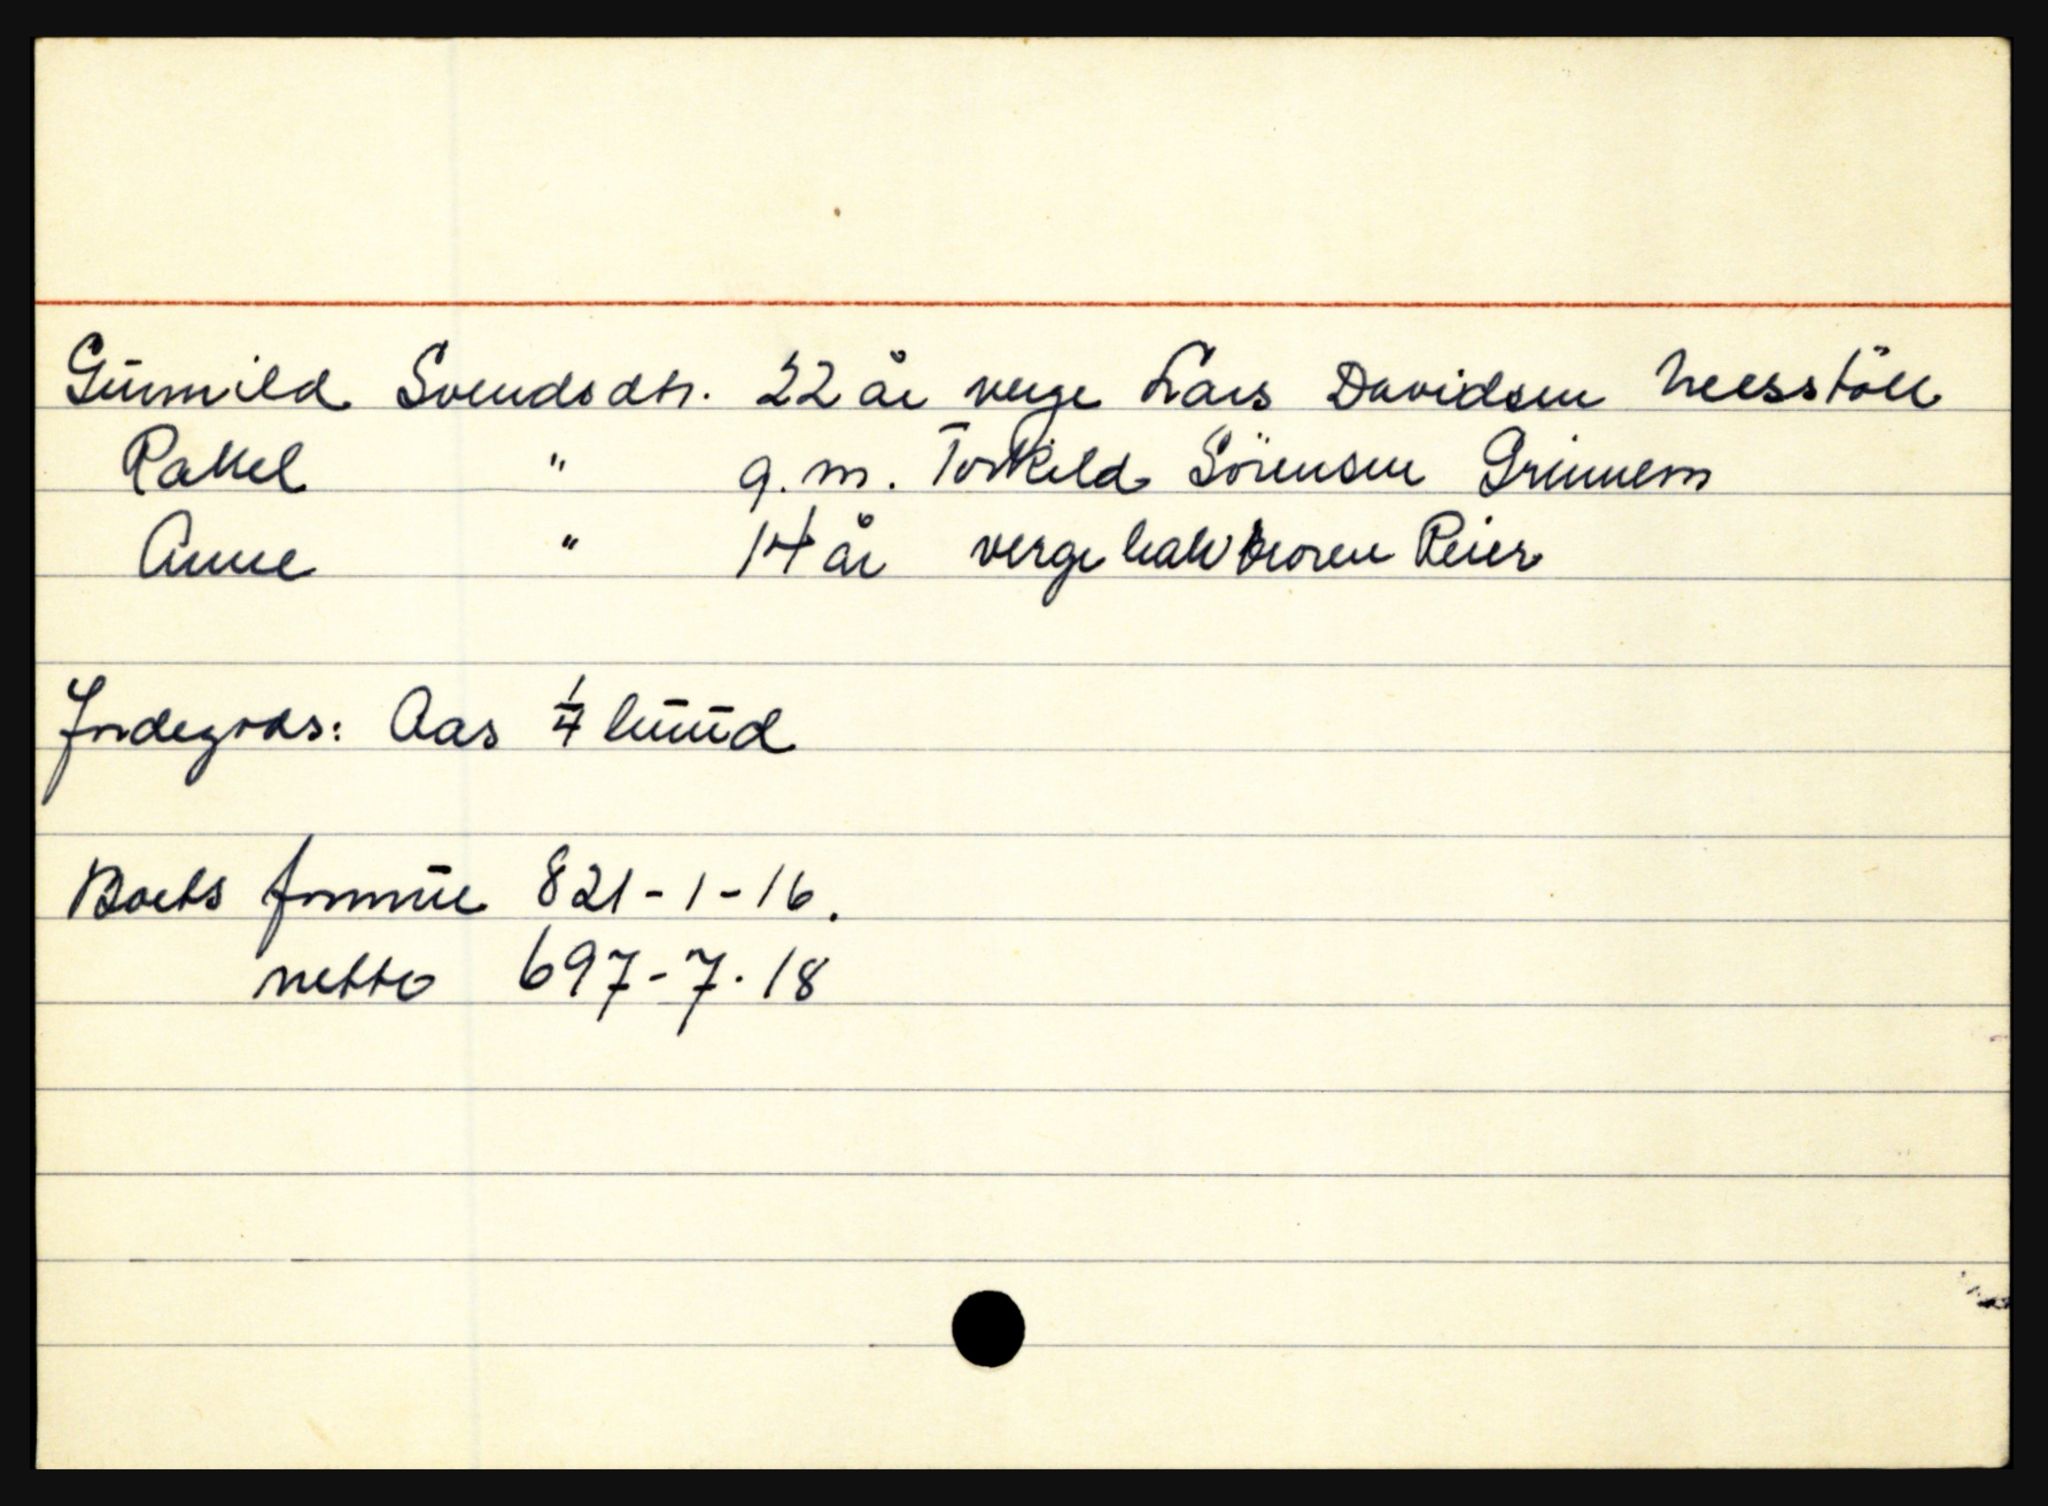 Gunnild Svendsdtr. 22 år verge Lars Davidsen Neesstöll
Rakel " g.m. Torkild Sörensen Grinnem
Anne " 14 år verge halvbroren Reier
Jordegods: Aas 1/4 huud
Boets formue 821-1-16.
netto 697-7-18